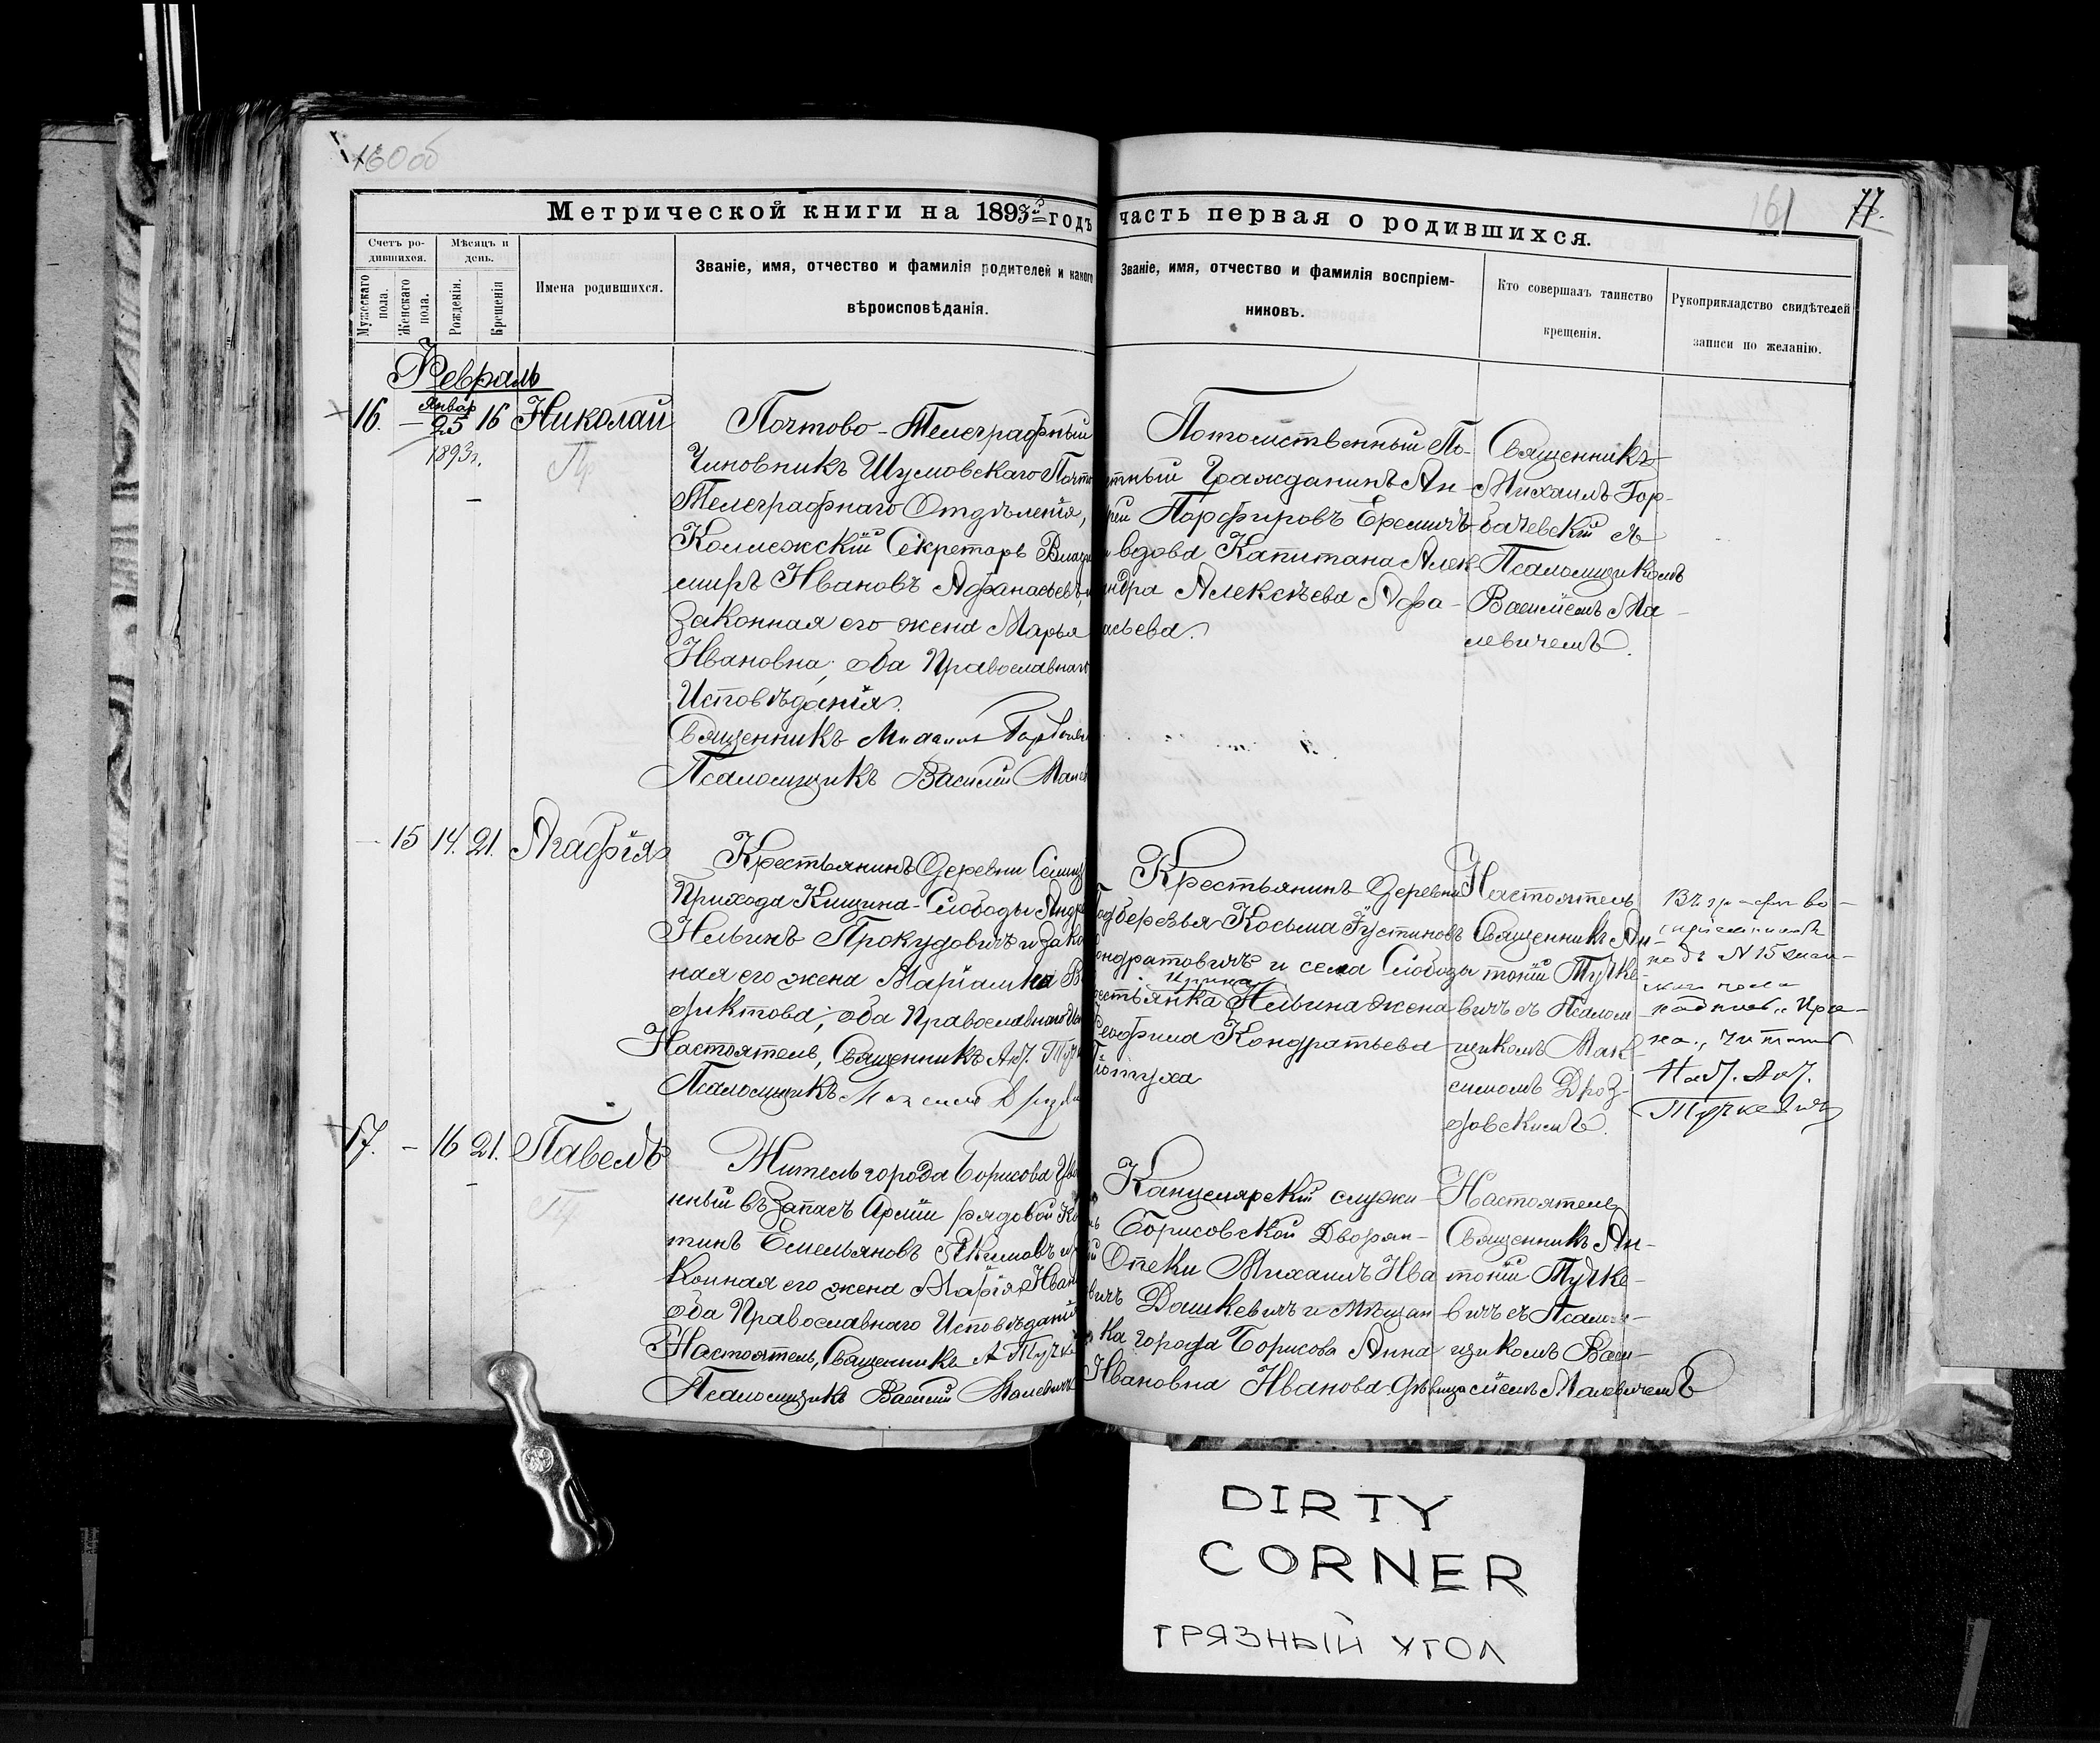 160об
161
77.
Метрической книги на 1893й годъ
часть первая о родившихся.
Счетъ родившихся.
Мужескаго пола.
Женскаго пола.
Мѣсяцъ и день.
Рожденія.
Крещенія
Имена родившихся.
Званіе, имя, отчество и фамилія родителей и какого
вѣроисповѣданія.
Званіе, имя, отчество и фамилія воспріем-
никовъ.
Кто совершалъ таинство
крещенія.
Рукоприкладство свидѣтелей
записи по желанію.
Февраль
16. — Январ 25 1893г. 16 Николай
Почтово-Телеграфный
Чиновникъ Шумовскаго Почто
Телеграфнаго Отдѣленія,
Коллежскій Секретарь Влади
миръ Ивановъ Афанасьевъ и
законная его жена Марья
Ивановна, оба Православнаго
Исповѣданія.
Священникъ Михаилъ
Псаломщикъ Василій
Потомственный По-
тный Гражданинъ Ан-
рей Порфировъ Еремичъ
и вдова Капитана Алек-
андра Алексѣева Афа-
асьева.
Священникъ
Михаилъ Гор-
бачевскій съ
Псаломщикомъ
Василіемъ Ма-
левичемъ.
— 15 14. 21. Агафія
Крестьянинъ Деревни
Прихода Кищина-Слободы Андре
Ильинъ Прокудовичъ и зако
ная его жена Маріамна В
фиктова, оба Православнаго
Настоятель, Священникъ Ант.
Псаломщикъ
Крестьянинъ Деревни
одберезья Косьма Іустиновъ
ондратовичъ и села Слободы
Ирина
естьянка Ильина жена
еофила Кондратьева
Настоятель
Священникъ Ан-
тоній Тучке-
вичъ съ Псалом
щикомъ Мак-
симомъ Дроз-
довскимъ.
Въ графѣ во-
спріемниковъ
подъ N 15
надпись „Ири-
на„ читать
Наст. Ант.
Тучкевичъ
17. — 16 21. Павелъ
Житель города Борисова Уво
нный въ запасъ Арміи рядовой
тинъ Емельяновъ Якимовъ и за
конная его жена Марія Иван
оба Православнаго Исповѣданія
Настоятель, Священникъ А Тучке
Псаломщикъ Василій Малевичъ
Канцелярскій служи-
ль Борисовской Дворян-
ой Опеки Михаилъ Ива
вичъ Дашкевичъ и Мѣщан
ка города Борисова Анна
Ивановна Иванова дѣвица
Настоятель
Священникъ Ан-
тоній Тучке-
вичъ съ Псалом-
щикомъ Васи-
ліемъ Малевичемъ
DIRTY
CORNER
ГРЯЗНЫЙ УГОЛ